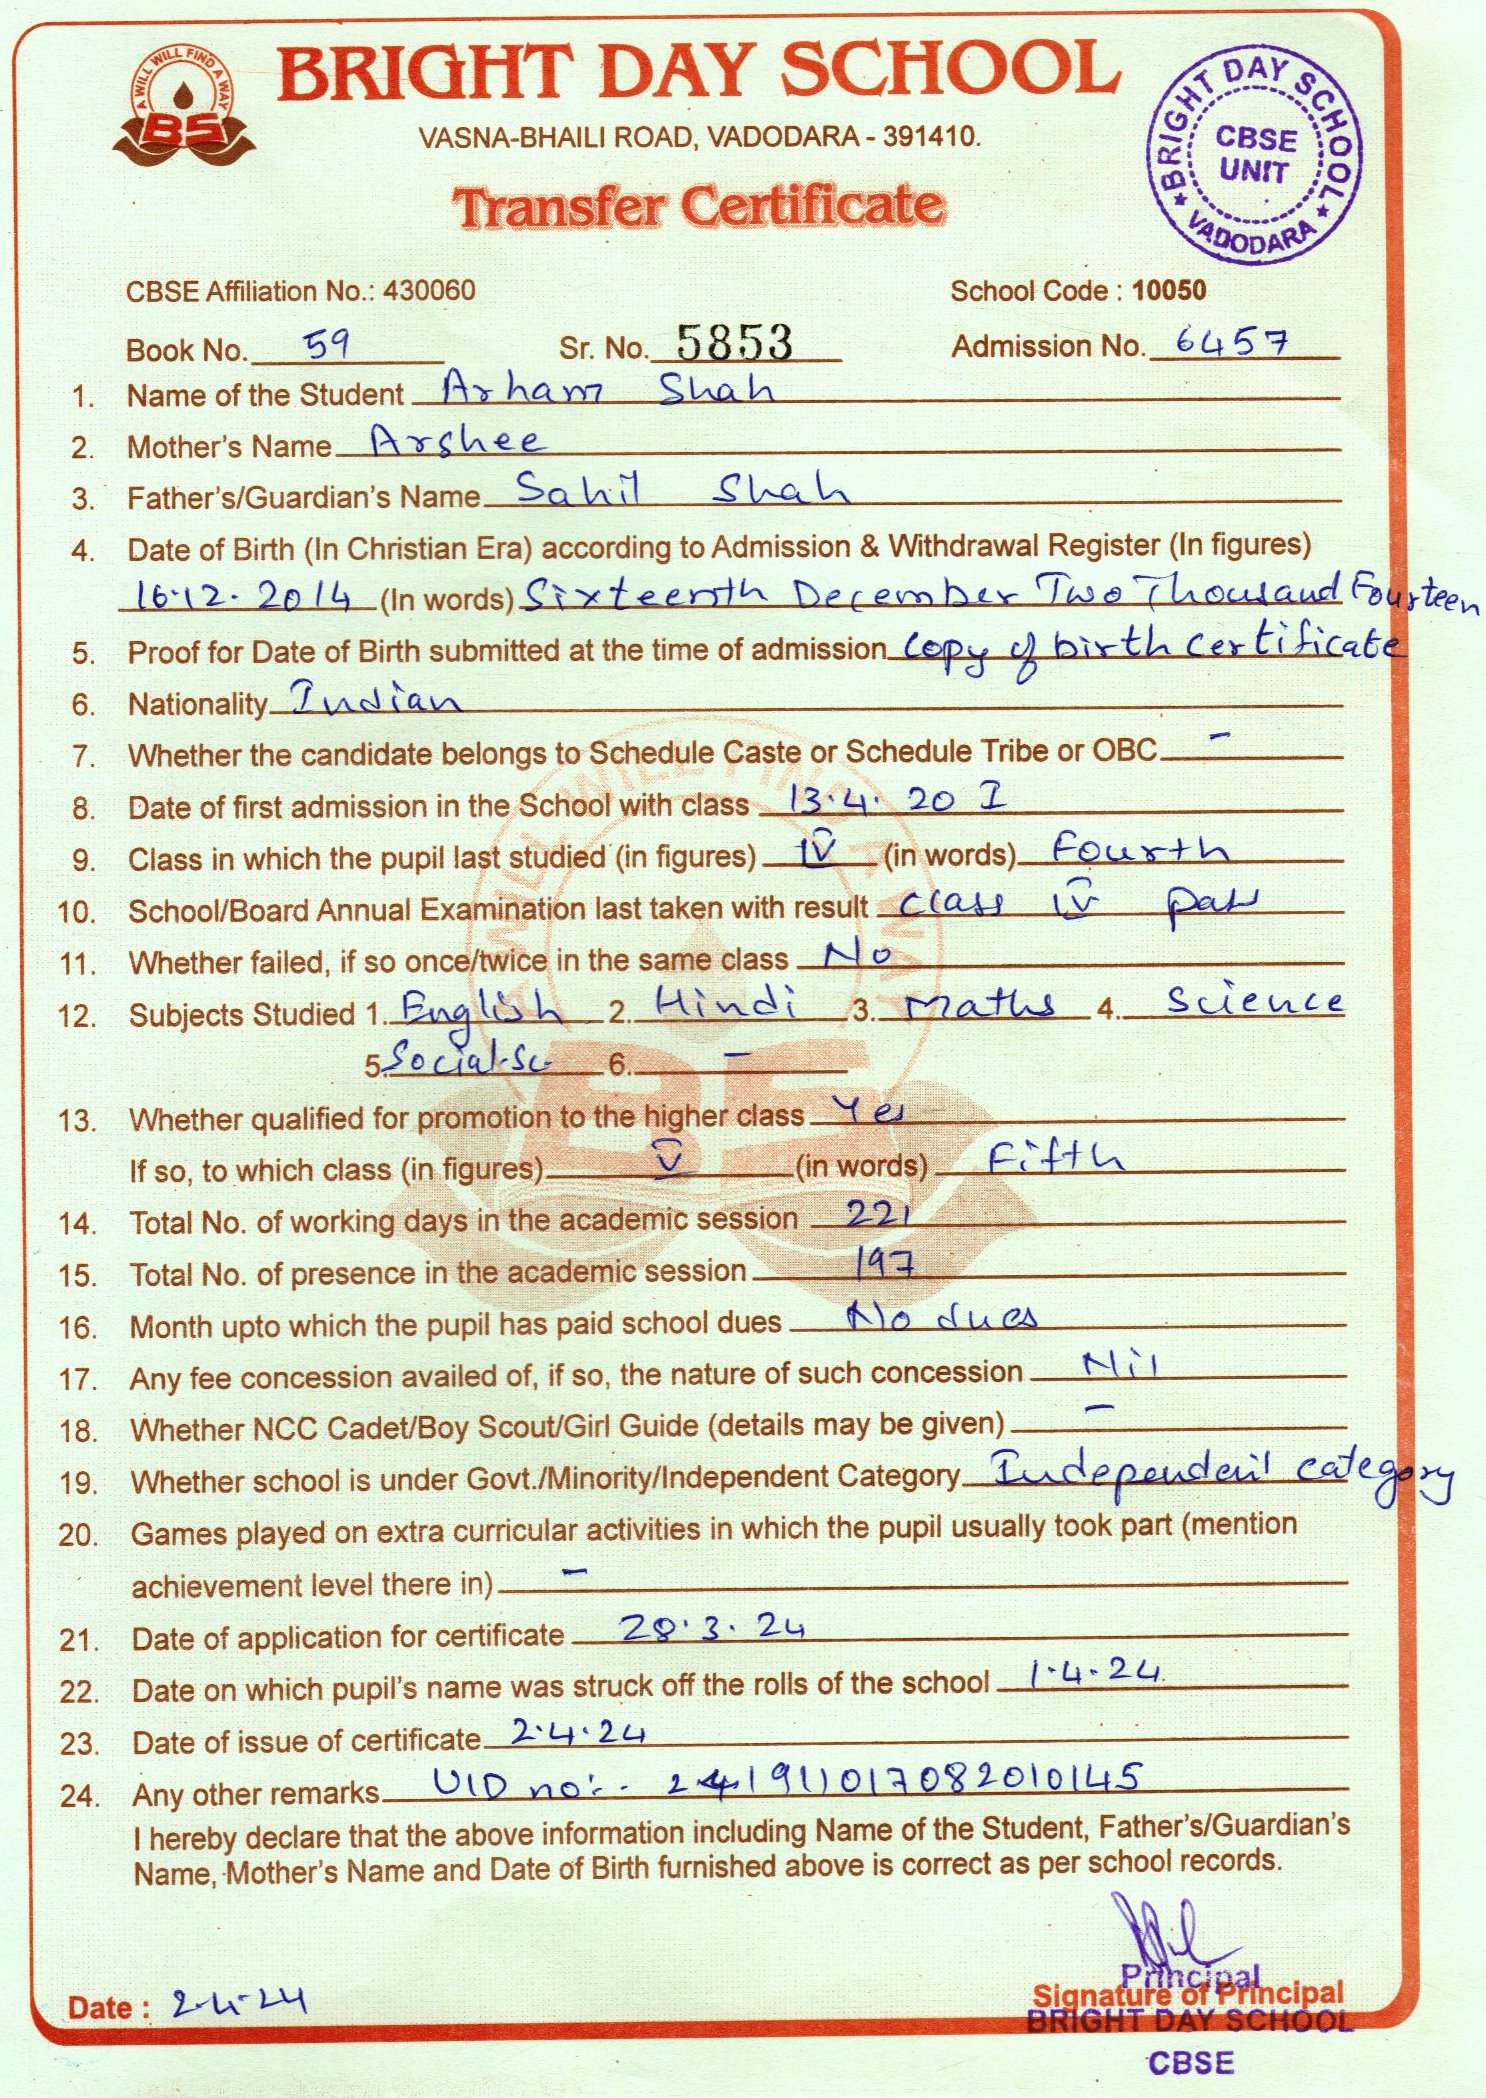 A WILL WILL FIND A WAY
BS
BRIGHT DAY SCHOOL
VASNA-BHAILI ROAD, VADODARA - 391410.
Transfer Certificate
BRIGHT DAY SCHOOL
CBSE
UNIT
VADODARA
CBSE Affiliation No.: 430060 School Code : 10050
Book No. 59 Sr. No. 5853 Admission No. 6457
1. Name of the Student Arham Shah
2. Mother's Name Arshee
3. Father's/Guardian's Name Sahil Shah
4. Date of Birth (In Christian Era) according to Admission & Withdrawal Register (In figures)
16.12.2014 (In words) Sixteenth December Two Thousand Fourteen
5. Proof for Date of Birth submitted at the time of admission Copy of birth certificate
6. Nationality Indian
7. Whether the candidate belongs to Schedule Caste or Schedule Tribe or OBC -
8. Date of first admission in the School with class 13.4.20 I
9. Class in which the pupil last studied (in figures) IV (in words) Fourth
10. School/Board Annual Examination last taken with result Class IV pass
11. Whether failed, if so once/twice in the same class No
12. Subjects Studied 1. English 2. Hindi 3. Maths 4. Science
5. Social.Sc. 6. -
13. Whether qualified for promotion to the higher class Yes
If so, to which class (in figures) V (in words) Fifth
14. Total No. of working days in the academic session 221
15. Total No. of presence in the academic session 197
16. Month upto which the pupil has paid school dues No dues
17. Any fee concession availed of, if so, the nature of such concession Nil
18. Whether NCC Cadet/Boy Scout/Girl Guide (details may be given) -
19. Whether school is under Govt./Minority/Independent Category Independent category
20. Games played on extra curricular activities in which the pupil usually took part (mention
achievement level there in) -
21. Date of application for certificate 28.3.24
22. Date on which pupil's name was struck off the rolls of the school 1.4.24
23. Date of issue of certificate 2.4.24
24. Any other remarks UID no:- 241911017082010145
I hereby declare that the above information including Name of the Student, Father's/Guardian's
Name, Mother's Name and Date of Birth furnished above is correct as per school records.
Principal
Date : 2.4.24 Signature of Principal
BRIGHT DAY SCHOOL
CBSE